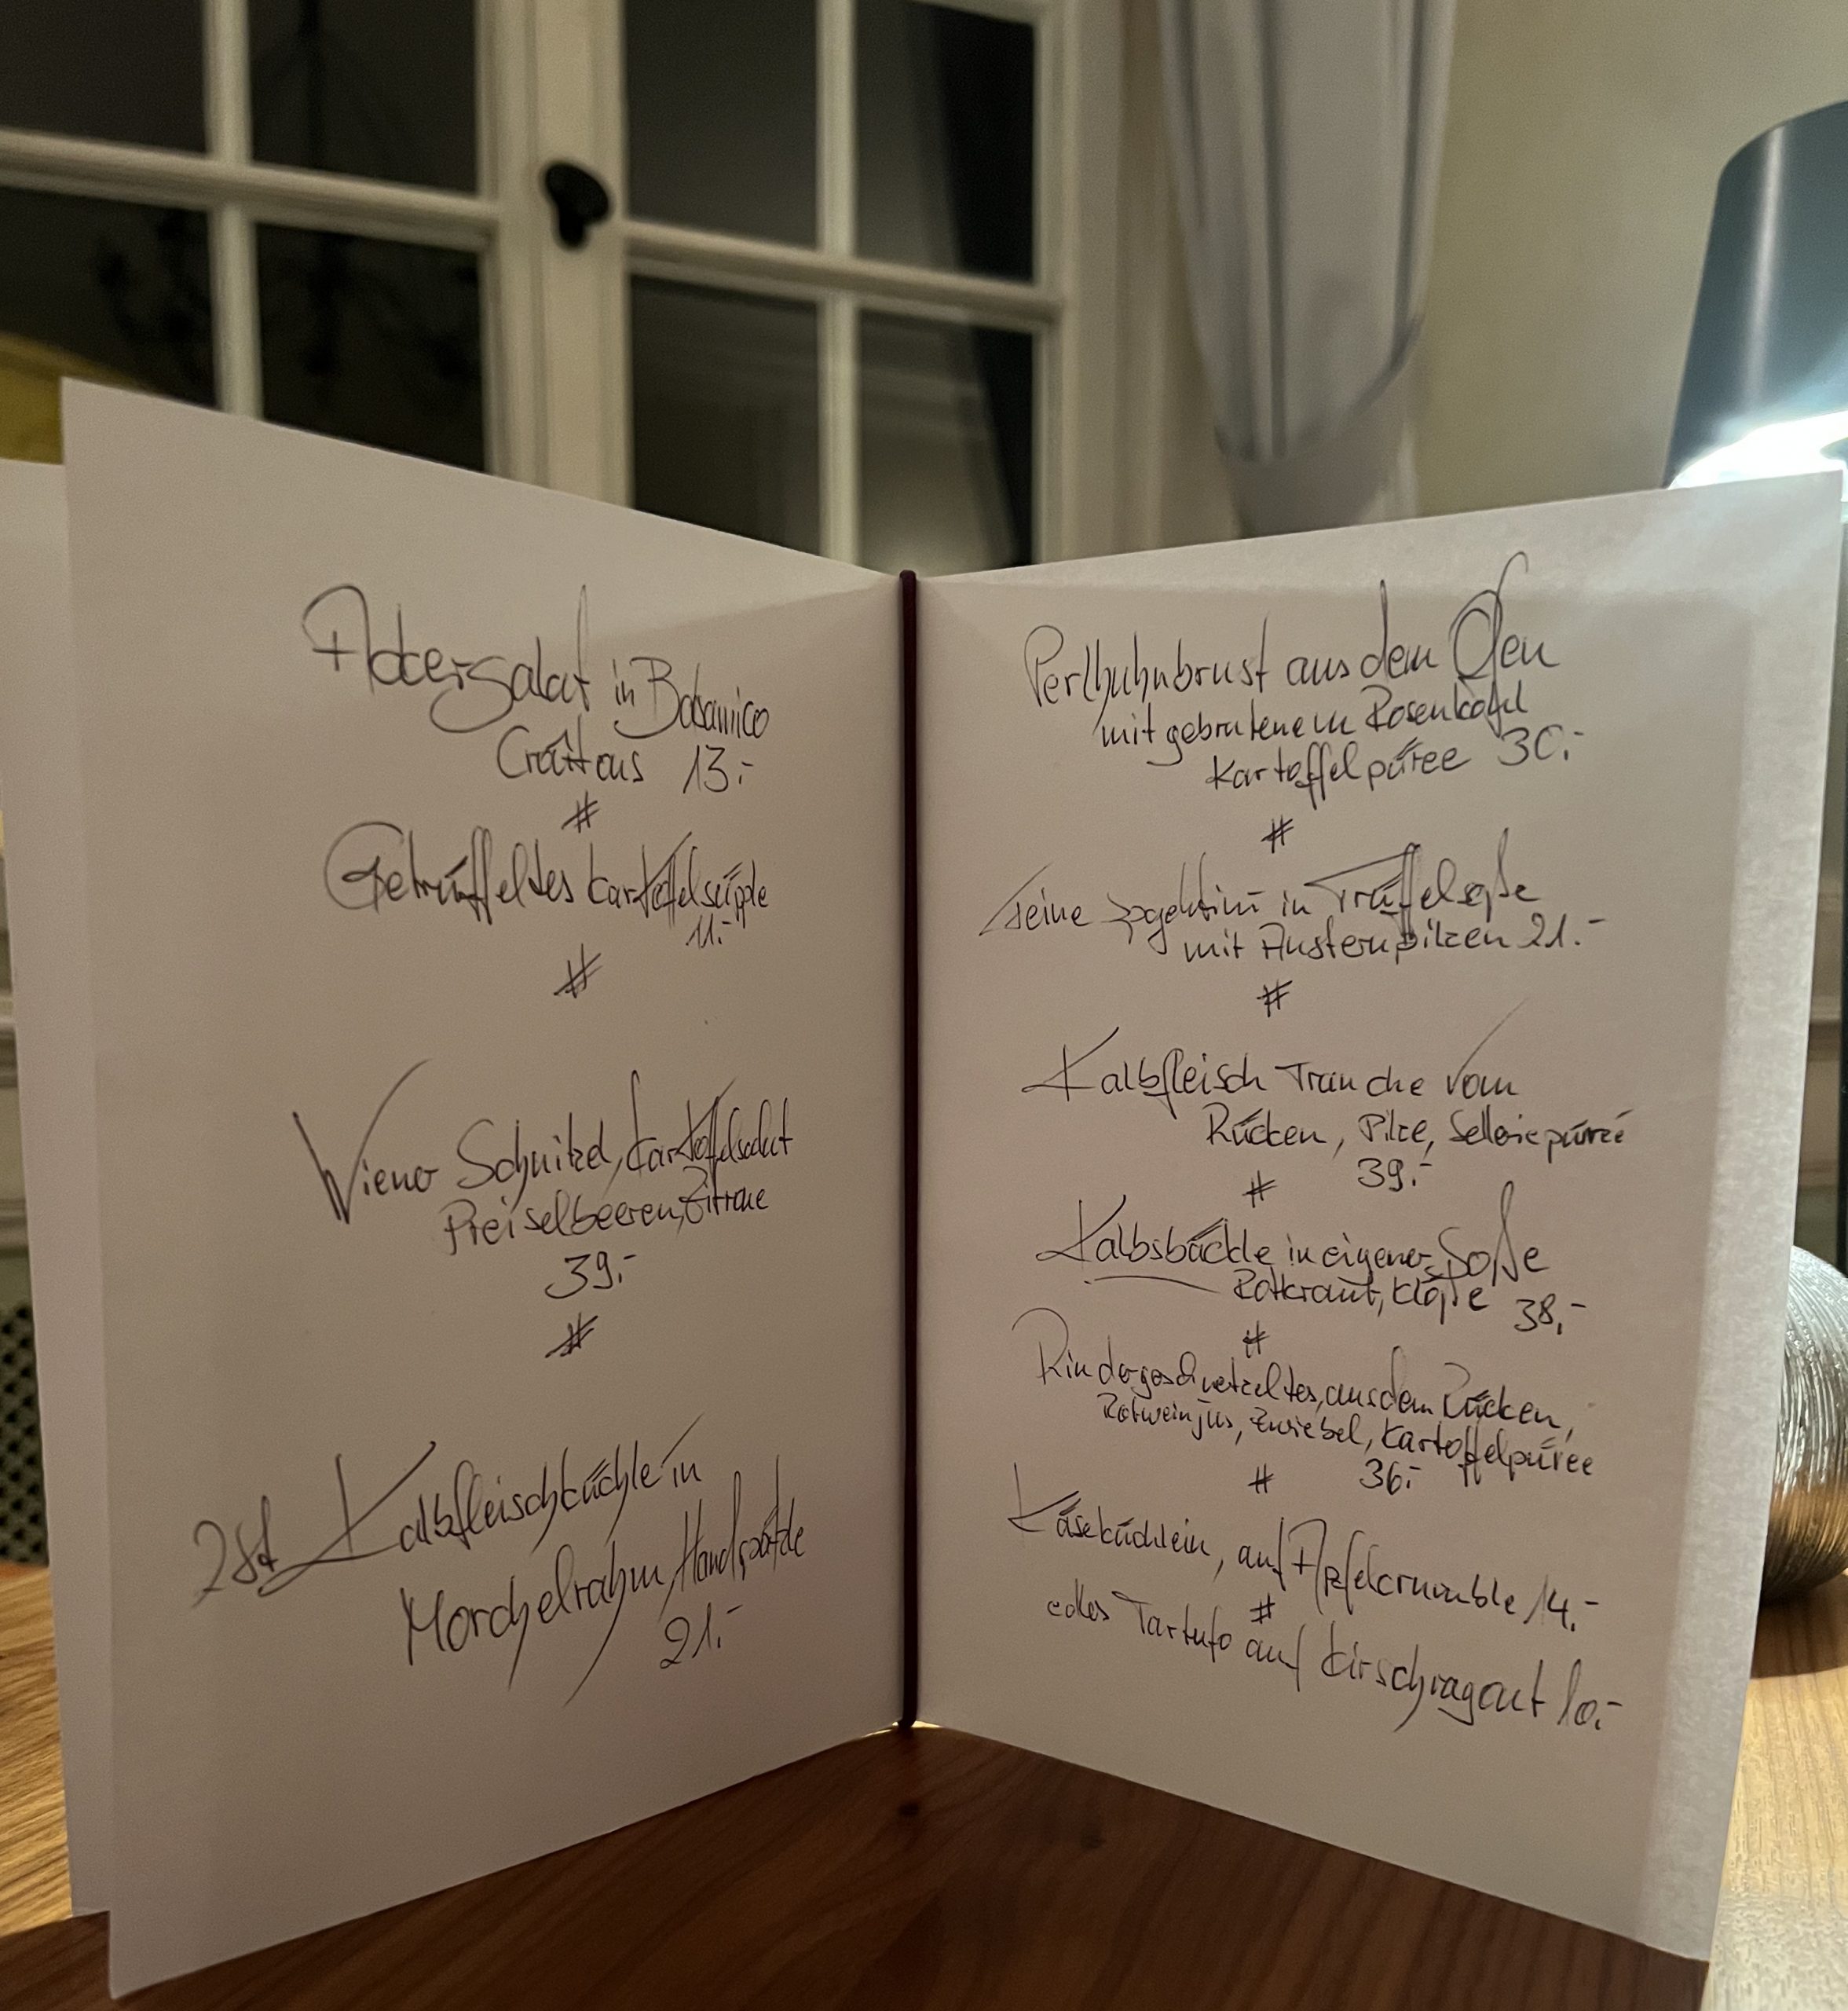 Ackersalat in Balsamico
Croûtons 13.-
#
Getrüffeltes Kartoffelsüpple
11.-
#
Wiener Schnitzel, Kartoffelsalat
Preiselbeeren, Zitrone
39.-
#
2 St Kalbfleischküchle in
Morchelrahm, Handspätzle
21.-
Perlhuhnbrust aus dem Ofen
mit gebratenem Rosenkohl
Kartoffelpüree 30.-
#
feine Spagettini in Trüffelsoße
mit Austernpilzen 21.-
#
Kalbfleisch Tranche vom
Rücken, Pilze, Selleriepüree
39.-
#
Kalbsbäckle in eigener Soße
Rotkraut, Klöße 38,-
#
Rindergeschnetzeltes, aus dem Rücken,
Rotweinjus, Zwiebel, Kartoffelpüree
36.-
#
Käseküchlein, auf Apfelcrumble 14.-
#
edles Tartufo auf Kirschragout 10.-